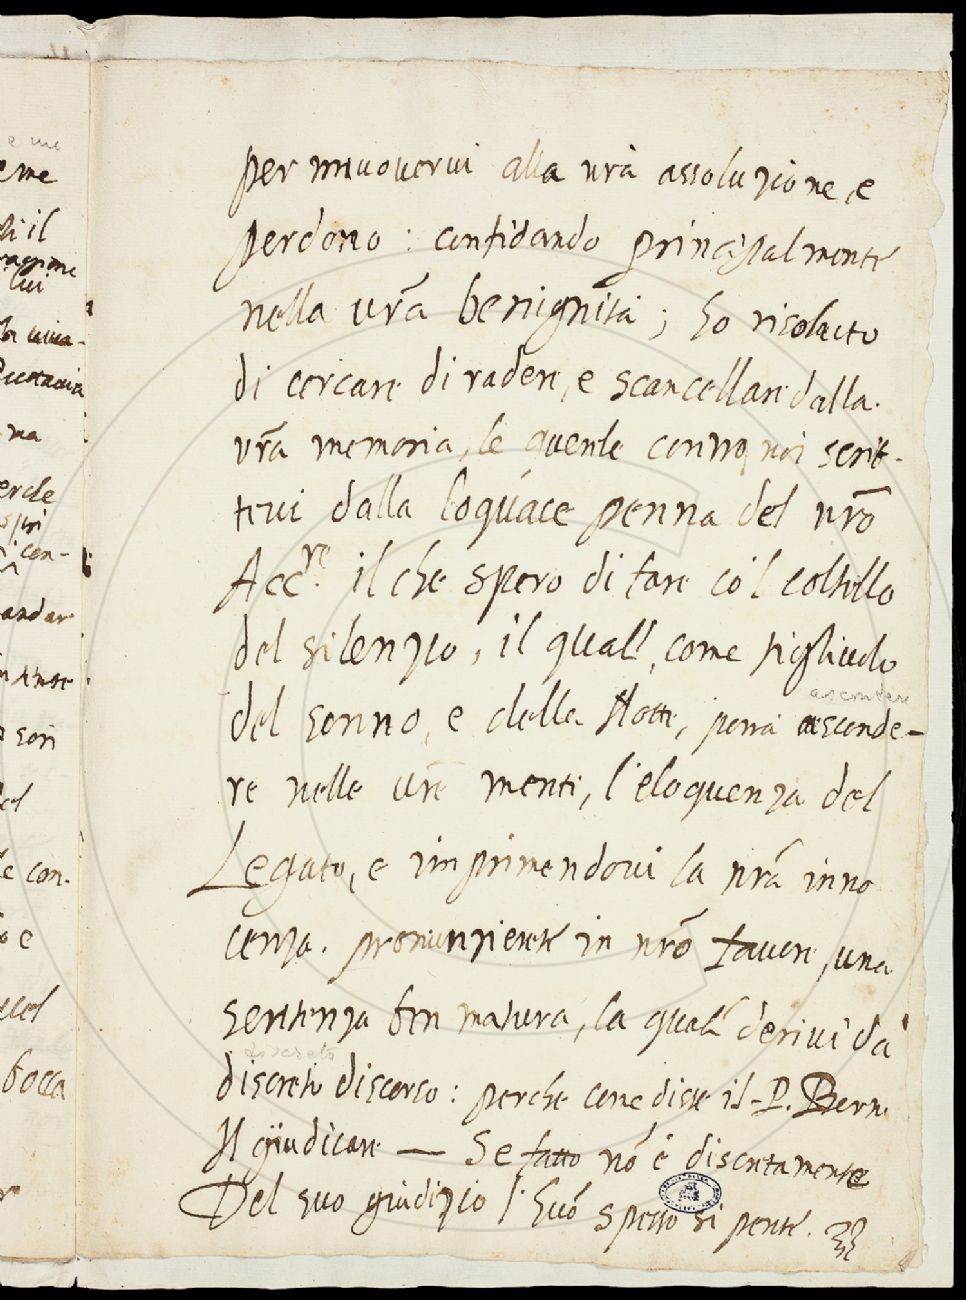 e me
eme
il
lui
na
con-
andar
sori
el
e con-
o e
bocca
per muovervi alla vrã assoluzione, e
perdono: confidando principalmente
nella vrã benignità; ho risoluto
di cercare di radere, e scancellare dalla
vrã memoria, le querele contro noi scrit-
tevi dalla loquace penna del nrõ
Accre. il che spero di fare co'l coltello
del silenzio, il quall, come figliuolo
ascondere
del sonno, e della Notte, porrà asconde-
re nelle vrẽ menti, l'eloquenza del
Legato, e imprimendovi la nrã inno
cenza. pronunzierete in nrõ favore, una
sentenza ben matura, la quall derivi dà
discreto
discreto discorso: perche come disse il P. Bern.
Il giudicare — Se fatto nõ è discretamente
Del suo giudizio l'huõ spesso si pente.